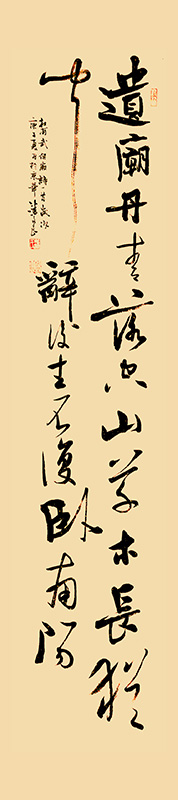 遺廟丹青落空山草木長猶
聞辭後主不復臥南陽
杜甫武侯廟詩